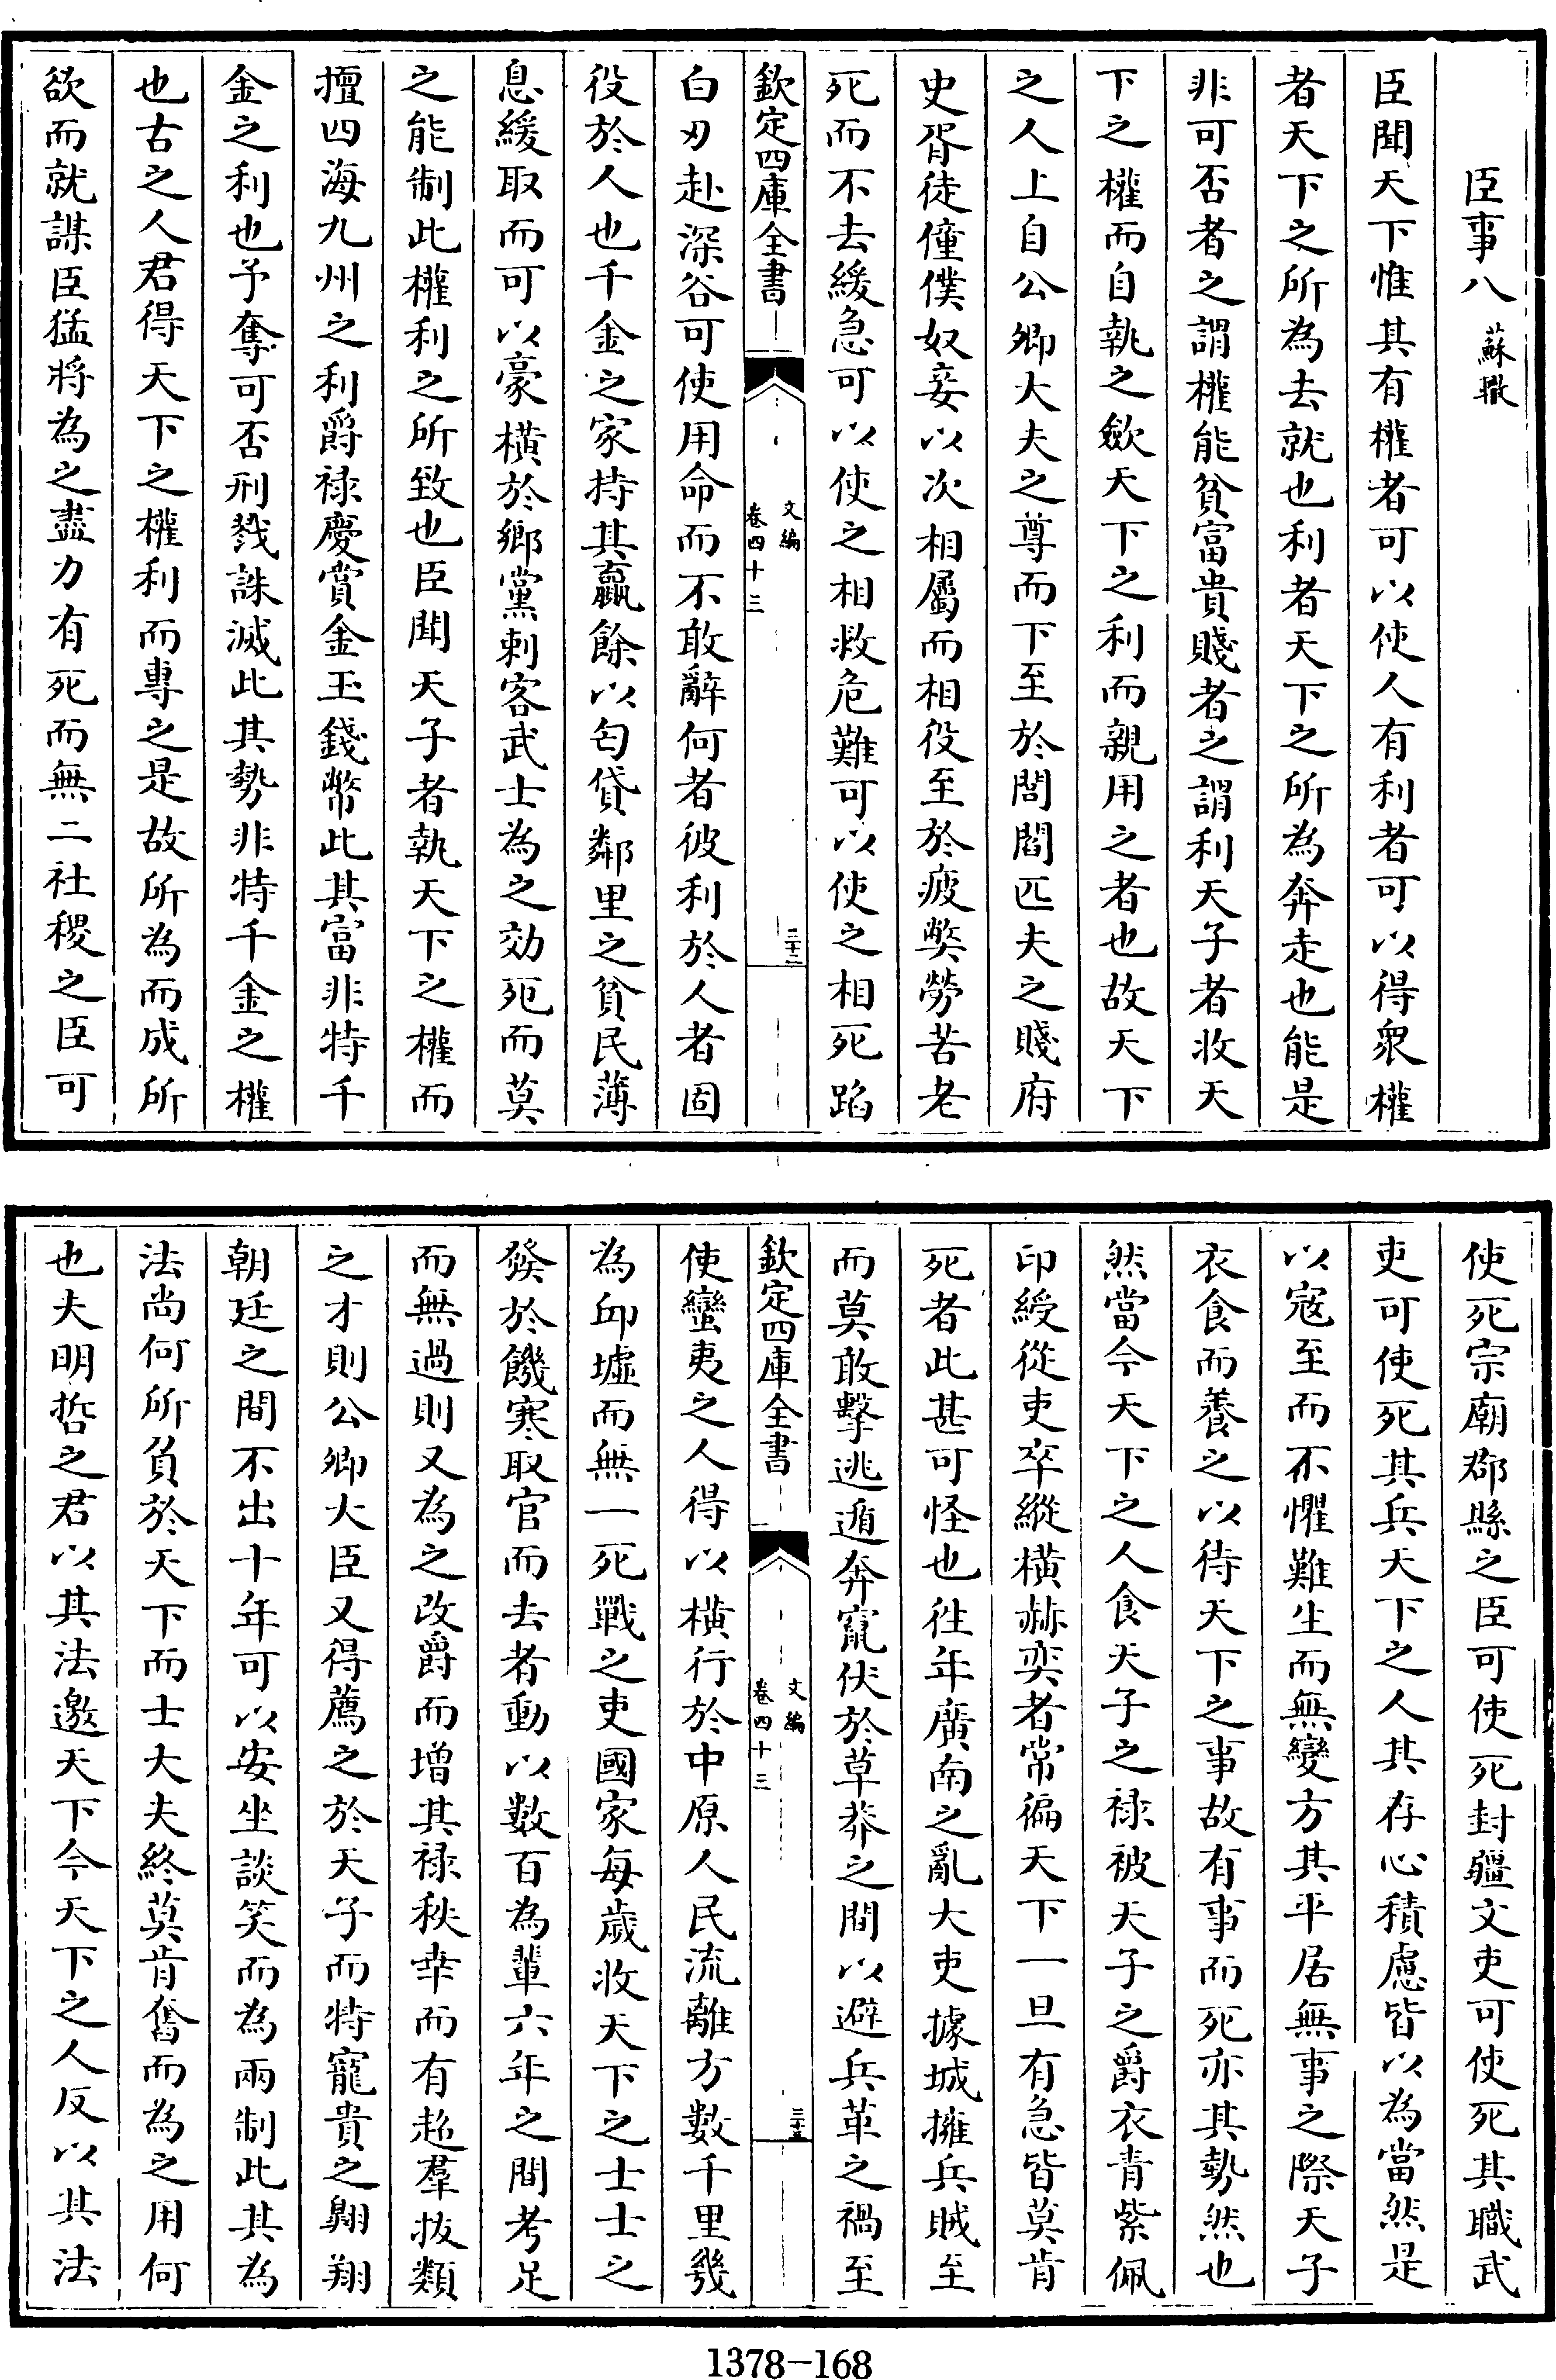 臣事八 蘇轍
臣聞天下惟其有權者可以使人有利者可以得衆權
者天下之所為去就也利者天下之所為奔走也能是
非可否者之謂權能貧富貴賤者之謂利天子者收天
下之權而自執之歛天下之利而親用之者也故天下
之人上自公卿大夫之尊而下至於閭閻匹夫之賤府
史胥徒僮僕奴妾以次相屬而相役至於疲弊勞苦老
死而不去緩急可以使之相救危難可以使之相死蹈
欽定四庫全書
文編
卷四十三
二十二
白刃赴深谷可使用命而不敢辭何者彼利於人者固
役於人也千金之家持其贏餘以匄貸鄰里之貧民薄
息緩取而可以豪橫於鄉黨刺客武士為之効死而莫
之能制此權利之所致也臣聞天子者執天下之權而
擅四海九州之利爵祿慶賞金玉錢幣此其富非特千
金之利也予奪可否刑戮誅滅此其勢非特千金之權
也古之人君得天下之權利而專之是故所為而成所
欲而就謀臣猛將為之盡力有死而無二社稷之臣可
使死宗廟郡縣之臣可使死封疆文吏可使死其職武
吏可使死其兵天下之人其存心積慮皆以為當然是
以寇至而不懼難生而無變方其平居無事之際天子
衣食而養之以待天下之事故有事而死亦其勢然也
然當今天下之人食天子之祿被天子之爵衣青紫佩
印綬從吏卒縱橫赫奕者常徧天下一旦有急皆莫肯
死者此甚可怪也徃年廣南之亂大吏據城擁兵賊至
而莫敢擊逃遁奔竄伏於草莽之間以避兵革之禍至
欽定四庫全書
文編
卷四十三
二十三
使蠻夷之人得以橫行於中原人民流離方數千里幾
為邱墟而無一死戰之吏國家每歲收天下之士士之
發於饑寒取官而去者動以數百為輩六年之間考足
而無過則又為之改爵而增其祿秩幸而有超羣拔類
之才則公卿大臣又得薦之於天子而特寵貴之翱翔
朝廷之間不出十年可以安坐談笑而為兩制此其為
法尚何所負於天下而士大夫終莫肯奮而為之用何
也夫明哲之君以其法邀天下今天下之人反以其法
1378-168